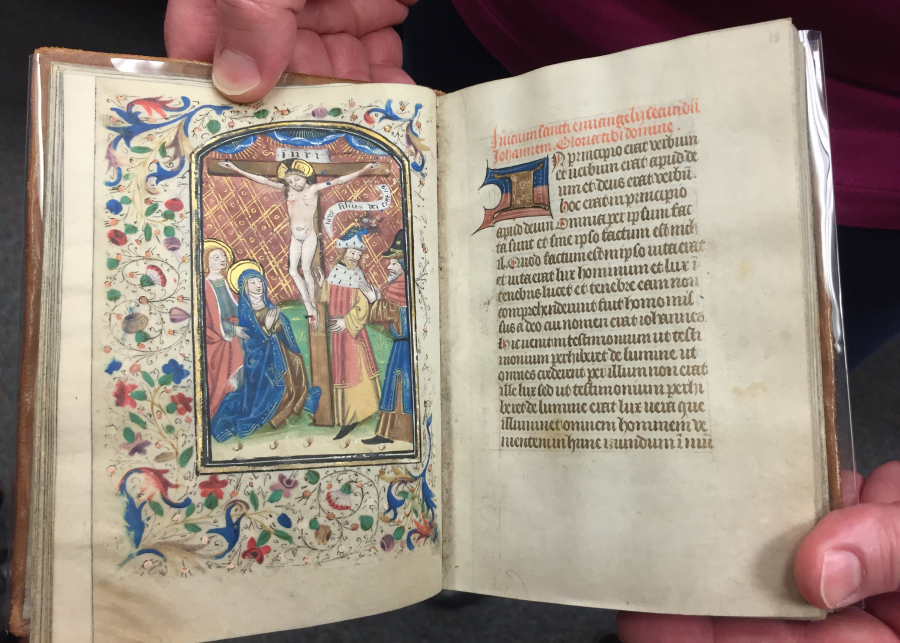 inri
filius dei
Inicium sancti euuangelij secundū
Johannem. Gloria tibi domine.
In principio erat verbum
et uerbum erat apud de
um et deus erat verbū.
hoc erat in principio
apud deum Omnia per ipsum fac
ta sunt et sine ipso factum est nich
il. Quod factum est in ipso uita erat
et uita erat lux hominum et lux ī
tenebris lucet et tenebre eam non
comprehenderunt fuit homo mis
sus a deo cui nomen erat iohannes.
hic uenit in testimonium ut testi
monium perhiberet de lumine ut
omnes crederent per illum non erat
ille lux sed ut testimonium perhi
beret de lumine erat lux uera que
illuminet omnem hominem ve
nientem in hunc mundum ī mū